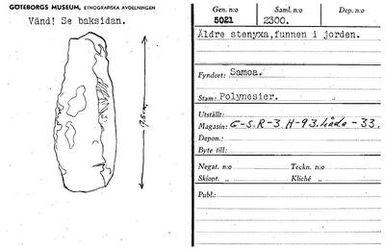 GÖTEBORGS MUSEUM, ETNOGRAFISKA AVDELNINGEN
Vänd! Se baksidan.
17,5 cm
Gen. n:o Saml. n:o Dep. n:o
5021 2300.
Äldre stenyxa,funnen i jorden.
Fyndort: Samoa.
Stam: Polynesier.
Utställt:
Magasin: G-S.R-3.H-93.låda-33.
Depon.:
Byte till:
Negat. n:o Teckn. n:o
Skiopt. „ Kliché „
Publ.: